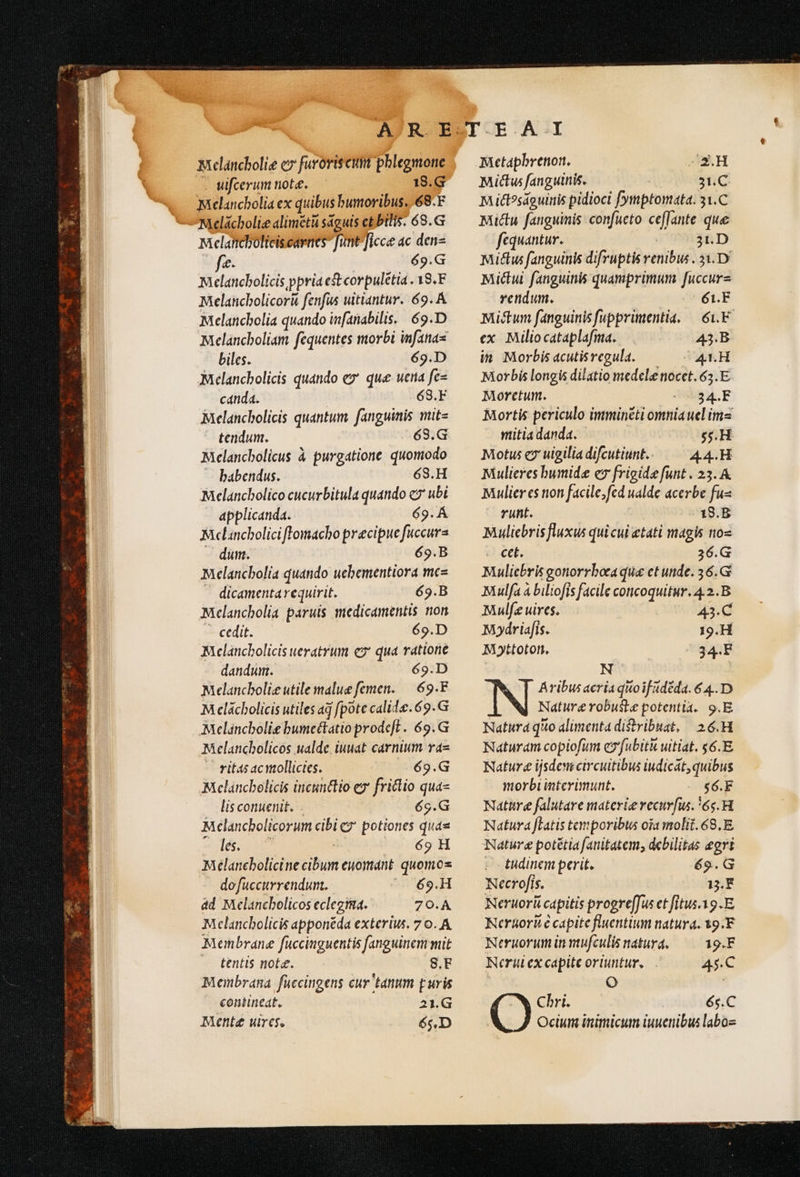 ARETEAI
Melancholiæ & furoris cum phlegmone
uiſcerum notæ. 18.G
Melancholia ex quibus humoribus. 68.F
Melācholiæ alimētū sāguis et bilis. 68.G
Melancholicis carnes ſunt ſiccæ ac den=
ſæ. 69.G
Melancholicis ,ppria est corpulētia. 18.F
Melancholicorū ſenſus uitiantur. 69.A
Melancholia quando inſanabilis. 69.D
Melancholiam ſequentes morbi inſana=
biles. 69.D
Melancholicis quando & quæ uena ſe=
canda. 68.F
Melancholicis quantum ſanguinis mit=
tendum. 68.G
Melancholicus à purgatione quomodo
habendus. 68.H
Melancholico cucurbitula quando & ubi
applicanda. 69.A
Melancholici ſtomacho præcipue ſuccur=
dum. 69.B
Melancholia quando uehementiora me=
dicamenta requirit. 69.B
Melancholia paruis medicamentis non
cedit. 69.D
Melancholicis ueratrum & qua ratione
dandum. 69.D
Melancholiæ utile maluæ ſemen. 69.F
Melācholicis utiles aq̃ ſpōte calidæ. 69.G
Melancholiæ humectatio prodeſt. 69.G
Melancholicos ualde iuuat carnium ra=
ritas ac mollicies. 69.G
Melancholicis incunctio & frictio qua=
lis conuenit. 69.G
Melancholicorum cibi & potiones qua=
les. 69 H
Melancholici ne cibum euomant quomo=
do ſuccurrendum. 69.H
ad Melancholicos eclegma. 70.A
Melancholicis apponēda exterius. 70.A
Membranæ ſuccinguentis ſanguinem mit
tentis notæ. 8.F
Membrana ſuccingens cur tantum puris
contineat. 21.G
Mentæ uires. 65.D
Metaphrenon. 2.H
Mictus ſanguinis. 31.C
Mict⁹ sāguinis pidioci ſymptomata. 31.C
Mictu ſanguinis conſueto ceſſante quæ
ſequantur. 31.D
Mictus ſanguinis diſruptis renibus. 31.D
Mictui ſanguinis quamprimum ſuccur=
rendum. 61.F
Mictum ſanguinis ſupprimentia. 61.F
ex Milio cataplaſma. 43.B
in Morbis acutis regula. 41.H
Morbis longis dilatio medelæ nocet. 63.E
Moretum. 34.F
Mortis periculo imminēti omnia uel im=
mitia danda. 55.H
Motus & uigilia diſcutiunt. 44.H
Mulieres humidæ & frigidæ ſunt. 23.A
Mulieres non facile, ſed ualde acerbe fu=
runt. 18.B
Muliebris fluxus qui cui ætati magis no=
cet. 36.G
Muliebris gonorrhoea quæ et unde. 36.G
Mulſa à bilioſis facile concoquitur. 42.B
Mulſæ uires. 43.C
Mydriaſis. 19.H
Myttoton. 34.F
N
NAribus acria quo ifūdēda. 64.D
Naturæ robustæ potentia. 9.E
Natura quo alimenta distribuat. 26.H
Naturam copioſum & ſubitū uitiat. 56.E
Naturæ ijsdem circuitibus iudicāt, quibus
morbi interimunt. 56.F
Naturæ ſalutare materiæ recurſus. 65.H
Natura ſtatis temporibus oīa molit̄. 68.E
Naturæ potētia ſanitatem, debilitas ægri
tudinem perit. 69.G
Necroſis. 13.F
Neruorū capitis progreſſus et ſitus. 19.E
Neruorū è capite fluentium natura. 19.F
Neruorum in muſculis natura. 19.F
Nerui ex capite oriuntur. 45.C
O
OChri. 65.C
Ocium inimicum iuuenibus labo=